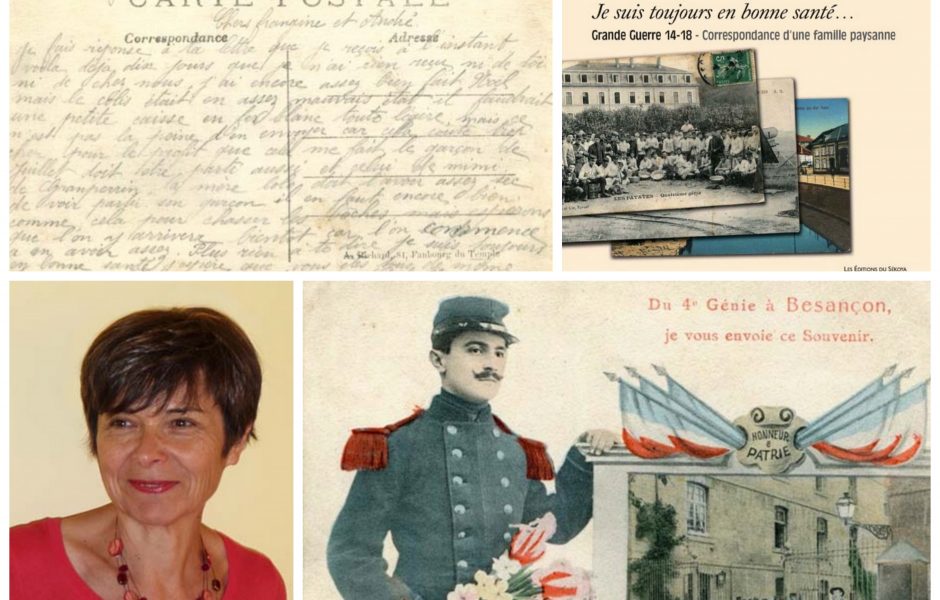 CARTE POSTALE
Chers françine et André
Correspondance
Adresse
je fais réponse à ta lettre que je reçois à l'instant
voila déja dix jours que je n'ai rien reçu ni de toi
ni de chez nous j'ai encore assez bien fait Noel
mais le colis était en assez mauvais état il faudrait
une petite caisse en fer blanc toute légère, mais ce
n'est pas la peine d'en envoyer car cela coute trop
cher pour le profit que cela me fait le garçon de
juillet doit être parti aussi et celui de mimi
de la mère doit l'avoir assez sec
de voir partir son garçon il en faut encore bien
comme cela pour chasser les boches mais espérons
que l'on y arrivera bientot car l'on commence
a en avoir assez. Plus rien à te dire je suis toujours
en bonne santé j'espère que vous êtes tous de même
A. Richard, 84, Faubourg du Temple
Je suis toujours en bonne santé…
Grande Guerre 14-18 - Correspondance d'une famille paysanne
LES PAVATES -
LES ÉDITIONS DU SÉKOYA
Du 4e Génie à Besançon,
je vous envoie ce Souvenir.
HONNEUR
&
PATRIE